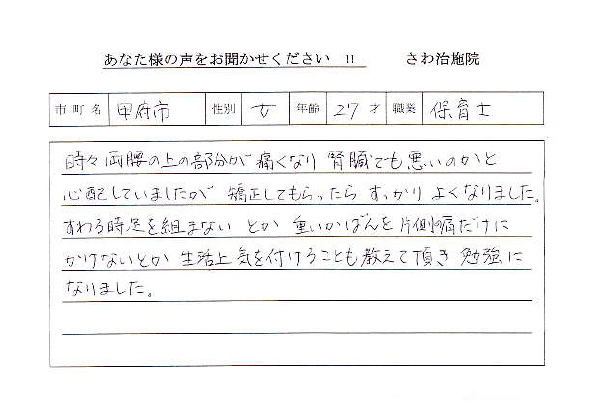 あなた様の声をお聞かせください !! さわ治施院
市町名 甲府市 性別 女 年齢 27才 職業 保育士
時々両腰の上の部分が痛くなり腎臓でも悪いのかと
心配していましたが矯正してもらったらすっかりよくなりました。
すわる時足を組まないとか重いかばんを片側の肩だけに
かけないとか生活上気を付けることも教えて頂き勉強に
なりました。